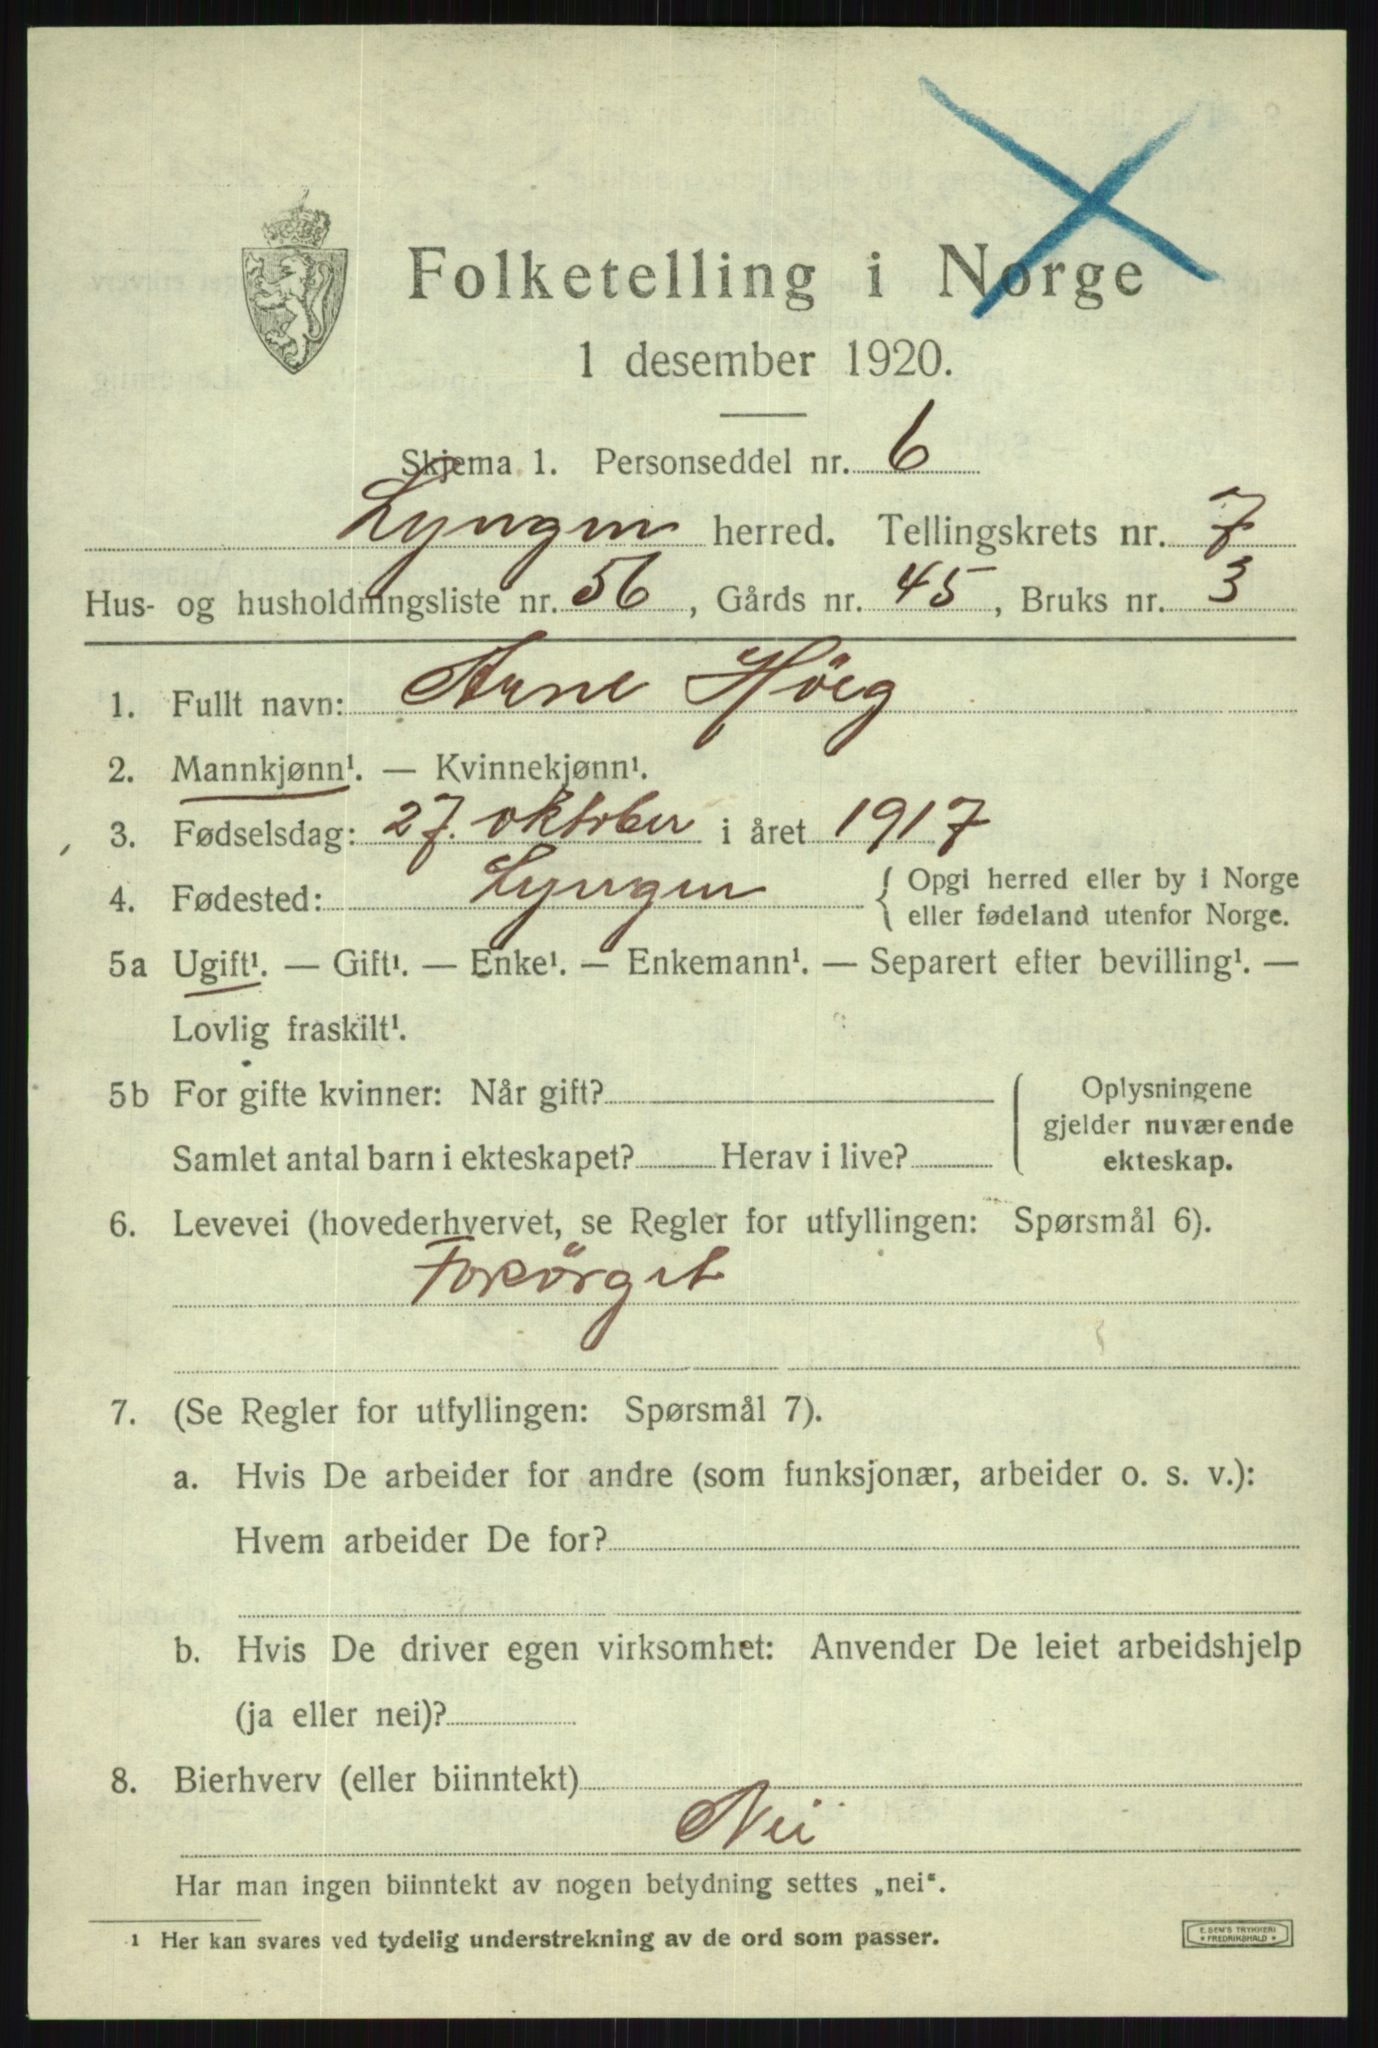 Folketelling i Norge
1 desember 1920.
Skjema 1. Personseddel nr. 6
Lyngen herred. Tellingskrets nr. 7
Hus- og husholdningsliste nr. 56, Gårds nr. 45, Bruks nr. 3
1. Fullt navn: Arne Höeg
2. Mannkjønn¹. — Kvinnekjønn¹.
3. Fødselsdag: 27. oktober i året 1917
4. Fødested: Lyngen { Opgi herred eller by i Norge
eller fødeland utenfor Norge.
5a Ugift¹. — Gift¹. — Enke¹. — Enkemann¹. — Separert efter bevilling¹. —
Lovlig fraskilt¹.
5b For gifte kvinner: Når gift?
Samlet antal barn i ekteskapet? Herav i live?
Oplysningene
gjelder nuværende
ekteskap.
6. Levevei (hovederhvervet, se Regler for utfyllingen: Spørsmål 6).
Forsörget
7. (Se Regler for utfyllingen: Spørsmål 7).
a. Hvis De arbeider for andre (som funksjonær, arbeider o. s. v.):
Hvem arbeider De for?
b. Hvis De driver egen virksomhet: Anvender De leiet arbeidshjelp
(ja eller nei)?
8. Bierhverv (eller biinntekt)
Nei
Har man ingen biinntekt av nogen betydning settes „nei".
¹ Her kan svares ved tydelig understrekning av de ord som passer.
E. SEM'S TRYKKERI
* FREDRIKSHALD *